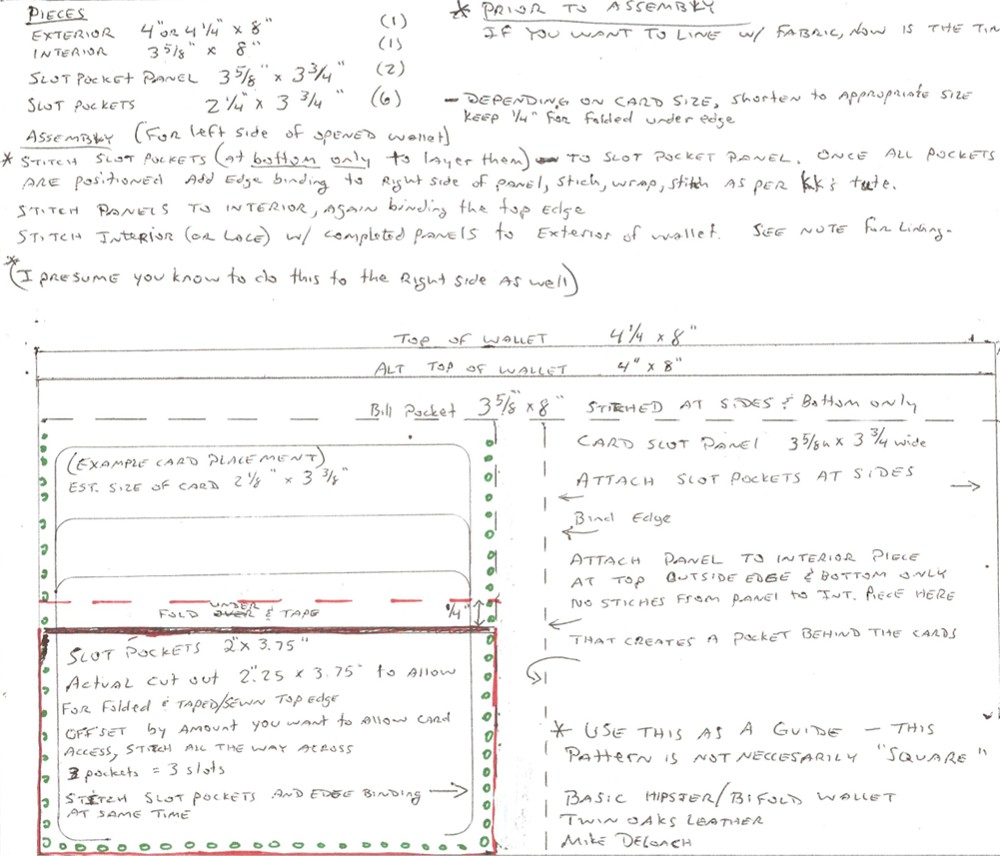 PIECES
EXTERIOR 4" OR 4 1/4" x 8" (1)
INTERIOR 3 5/8" x 8" (1)
SLOT POCKET PANEL 3 5/8" x 3 3/4" (2)
SLOT POCKETS 2 1/4" x 3 3/4" (6)
* PRIOR TO ASSEMBLY
IF YOU WANT TO LINE W/ FABRIC, NOW IS THE TIM
- DEPENDING ON CARD SIZE, shorten to Appropriate size
KEEP 1/4" For folded under edge
ASSEMBLY (For left side of opened wallet)
* STITCH SLOT POCKETS (at bottom only to layer them) TO SLOT POCKET PANEL. ONCE ALL POCKETS
ARE positioned Add Edge binding to Right side of panel, Stich, wrap, stitch AS PER KK's tute.
STITCH PANELS TO INTERIOR, AGAIN binding the top Edge
STITCH INTERIOR (OR LACE) W/ completed panels to Exterior of wallet. SEE NOTE for Lining.
*(I PRESUME you know to do this to the Right side As well)
TOP OF WALLET 4 1/4 x 8"
ALT TOP OF WALLET 4" x 8"
Bill Pocket 3 5/8" x 8" STITCHED AT SIDES & Bottom only
(EXAMPLE CARD PLACEMENT)
EST. SIZE OF CARD 2 1/8" x 3 3/8"
CARD SLOT PANEL 3 5/8" x 3 3/4 wide
ATTACH SLOT POCKETS AT SIDES
Bind Edge
ATTACH PANEL TO INTERIOR PIECE
AT TOP OUTSIDE EDGE & BOTTOM ONLY
NO STICHES FROM PANEL TO INT. PIECE HERE
THAT CREATES A POCKET BEHIND THE CARDS
UNDER
FOLD OVER & TAPE 1/4"
SLOT POCKETS 2" x 3.75"
Actual cut out 2".25 x 3.75" to ALLOW
FOR Folded & TAPED/SEWN Top edge
OFFSET by AMOUNT you want to ALLOW CARD
ACCESS, STITCH ALL THE WAY ACROSS
3 pockets = 3 slots
STITCH SLOT POCKETS AND EDGE BINDING
AT SAME TIME
* USE THIS AS A GUIDE - THIS
PATTERN IS NOT NECCESARILY "SQUARE"
BASIC HIPSTER/BIFOLD WALLET
TWIN OAKS LEATHER
MIKE DELOACH